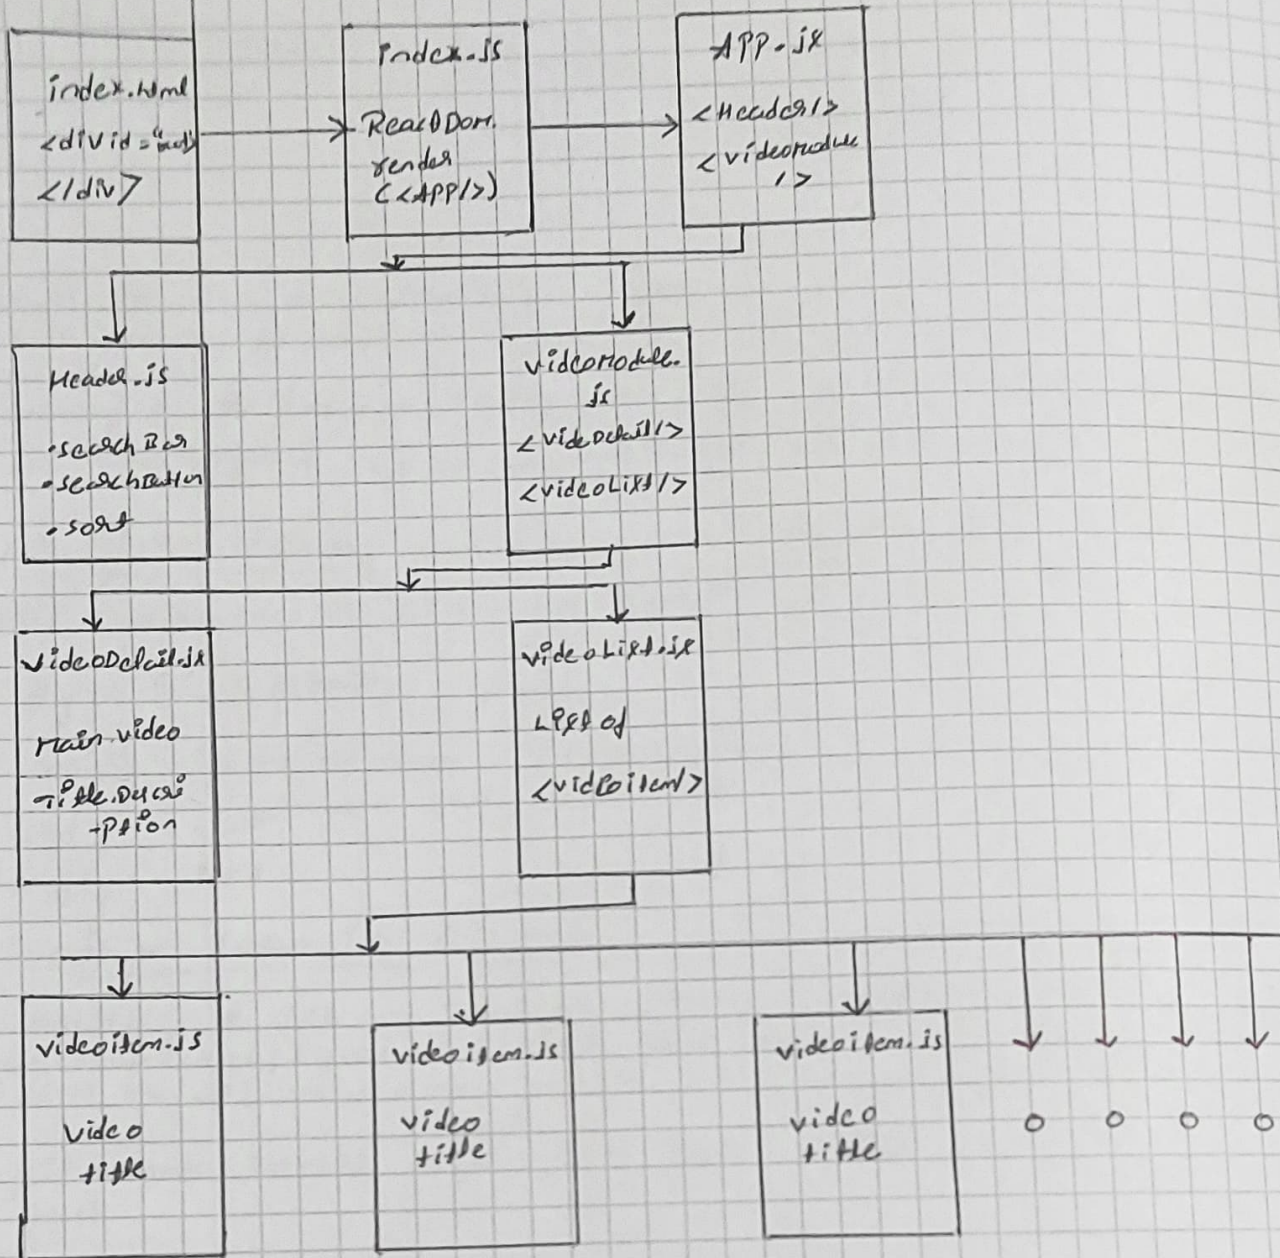 index.html
<div id="root">
</div>
index.js
ReactDom.
render
(<APP/>)
APP.js
<Header/>
<videomodule
/>
Header.js
•searchBar
•searchButton
•sort
videoModule.
js
<videoDetail/>
<videoList/>
videoDetail.js
Main video
Title.Descri
-ption
videoList.js
List of
<videoitem/>
videoitem.js
video
title
videoitem.js
video
title
videoitem.js
video
title